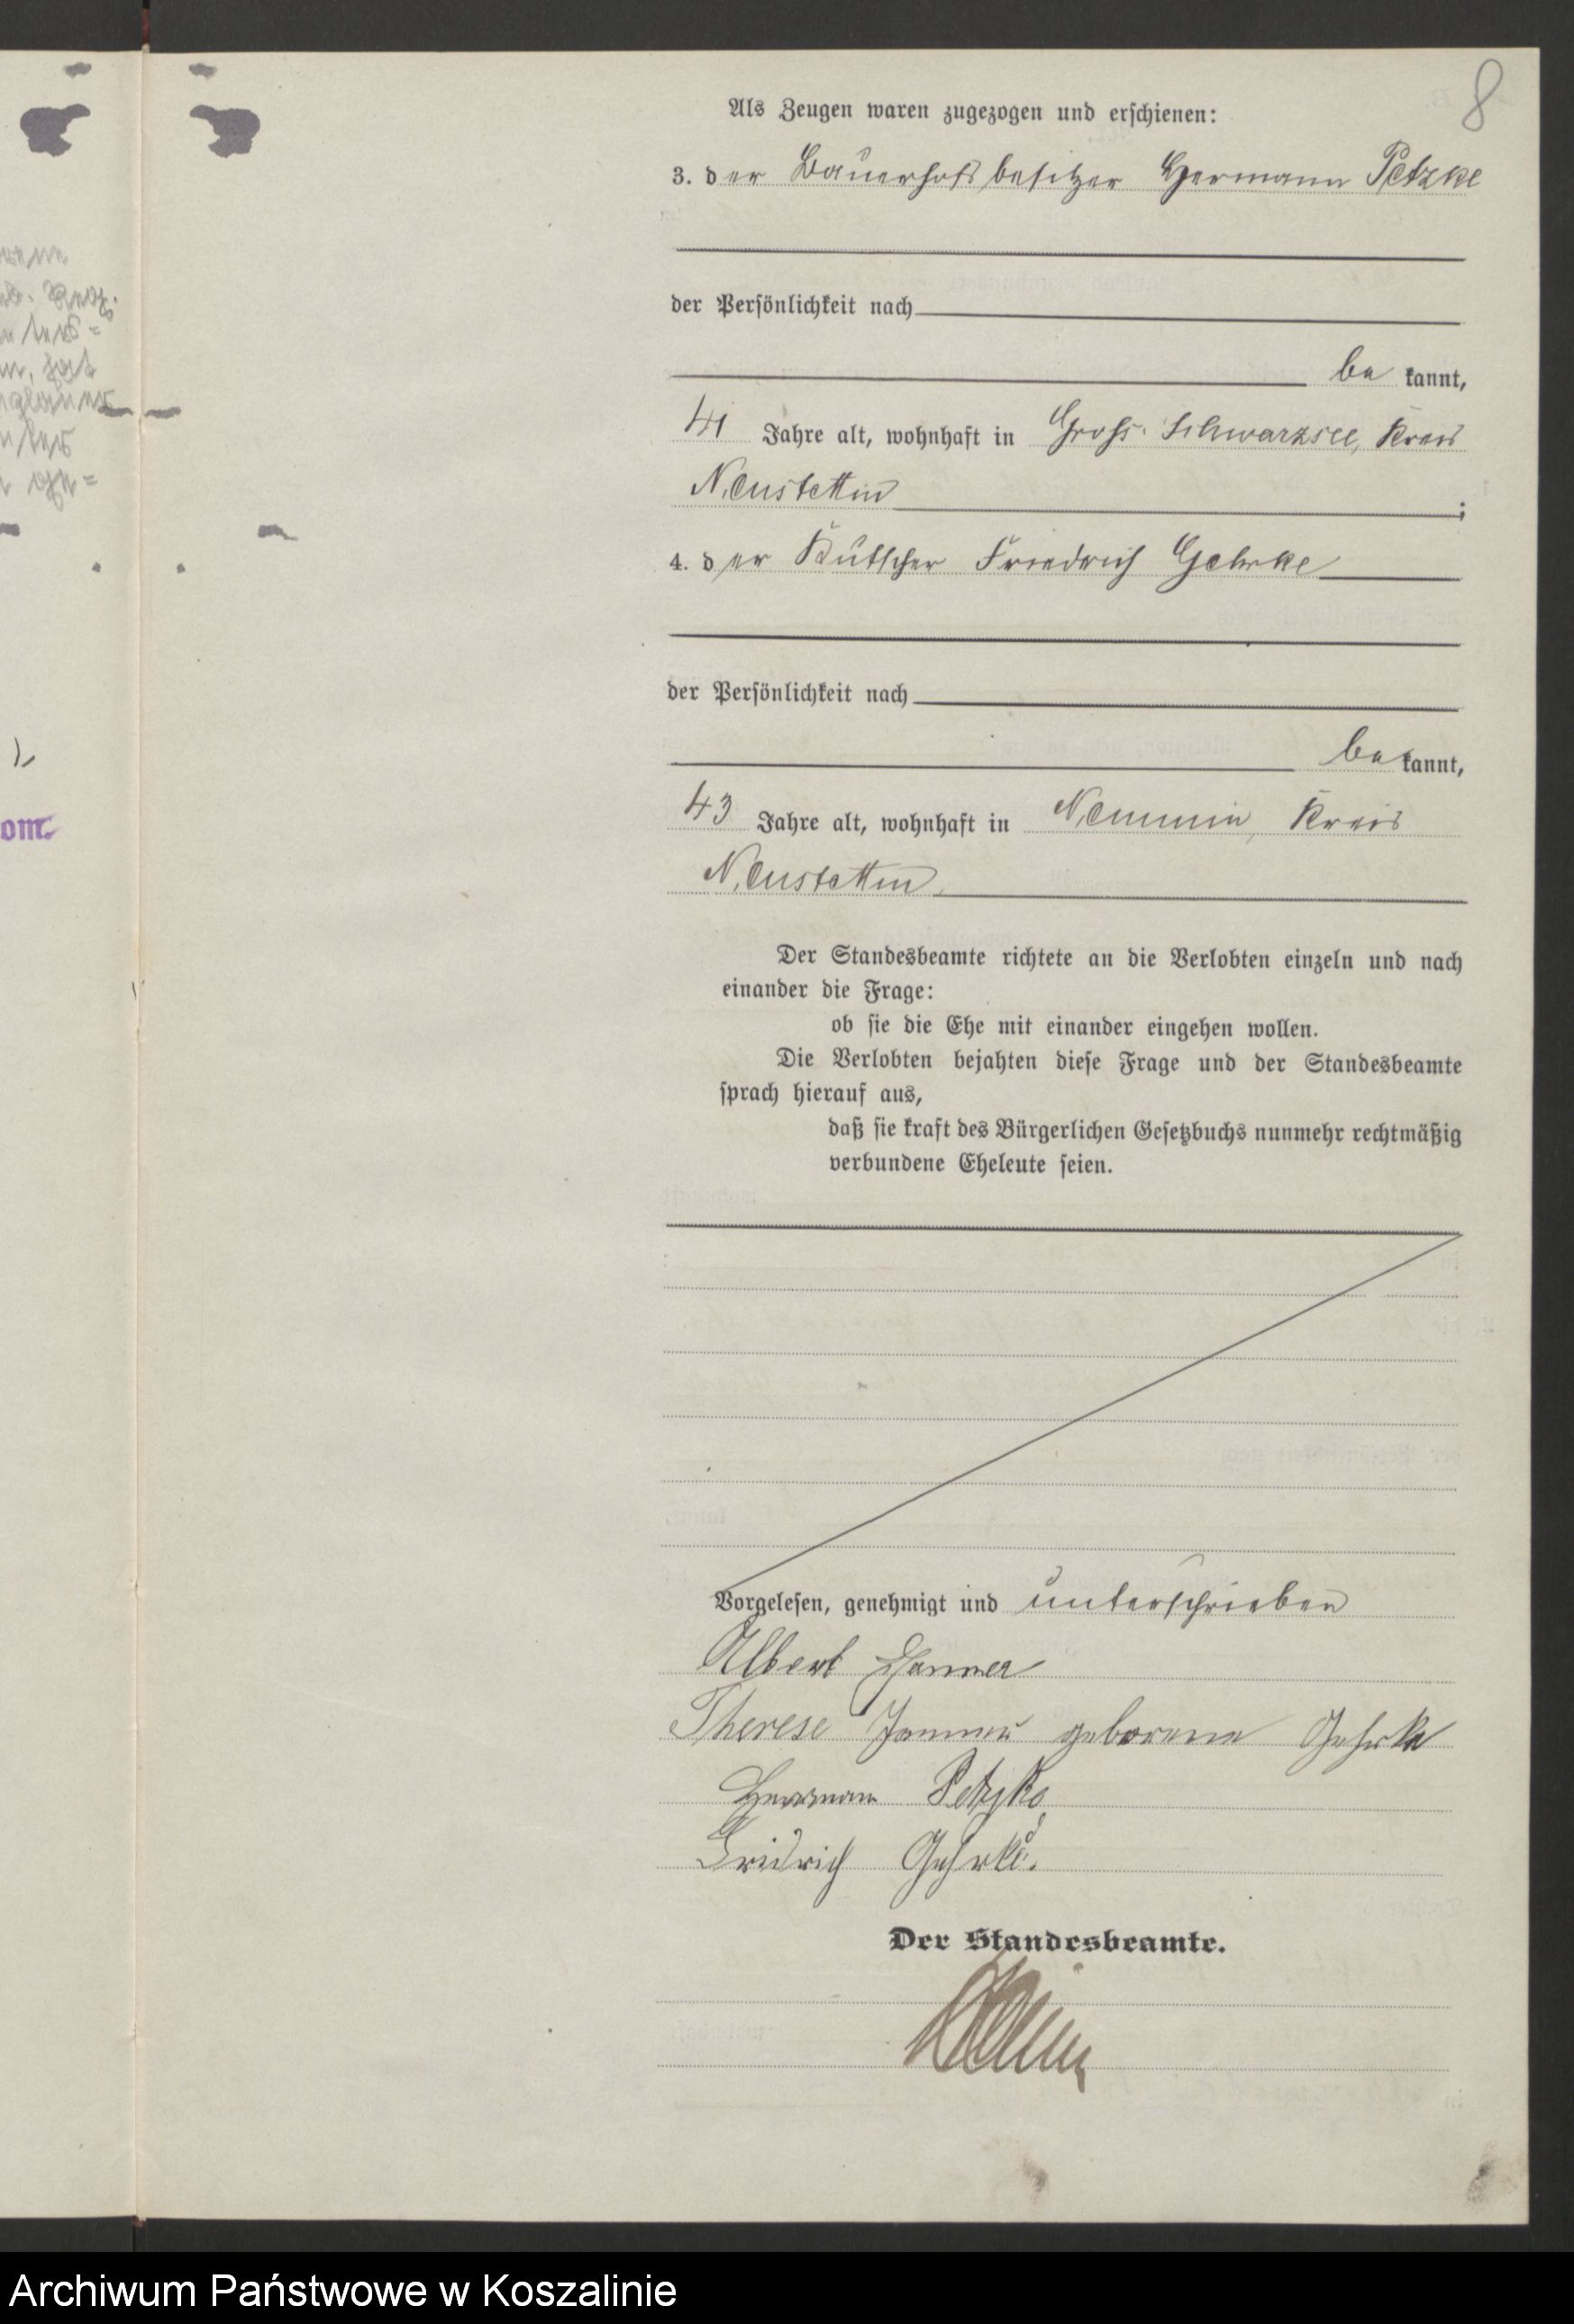 8
Als Zeugen waren zugezogen und erschienen:
3. der Bauerhofsbesitzer Hermann Petzke
der Persönlichkeit nach
be kannt,
41 Jahre alt, wohnhaft in Gross-Schwarzsee, Kreis
Neustettin ;
4. der Kutscher Friedrich Gehrke
der Persönlichkeit nach
be kannt,
43 Jahre alt, wohnhaft in Nemmin, Kreis
Neustettin
Der Standesbeamte richtete an die Verlobten einzeln und nach
einander die Frage:
ob sie die Ehe mit einander eingehen wollen.
Die Verlobten bejahten diese Frage und der Standesbeamte
sprach hierauf aus,
daß sie kraft des Bürgerlichen Gesetzbuchs nunmehr rechtmäßig
verbundene Eheleute seien.
Vorgelesen, genehmigt und unterschrieben
Albert
Therese geborene Gehrke
Herrman Petzke
Fridrich Gehrke.
Der Standesbeamte.
om.
Archiwum Państwowe w Koszalinie